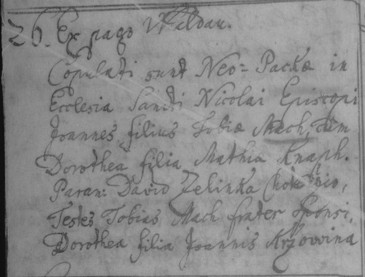 26. Ex pago Widau.
Copulati sunt Neo-Packæ in
Ecclesia Sancti Nicolai Episcopi
Joannes filius Tobiæ Mach, cum
Dorothea filia Mathia Knaph.
Paran: David Zelinka
Testes Tobias Mach frater sponsi,
Dorothea filia Joannis